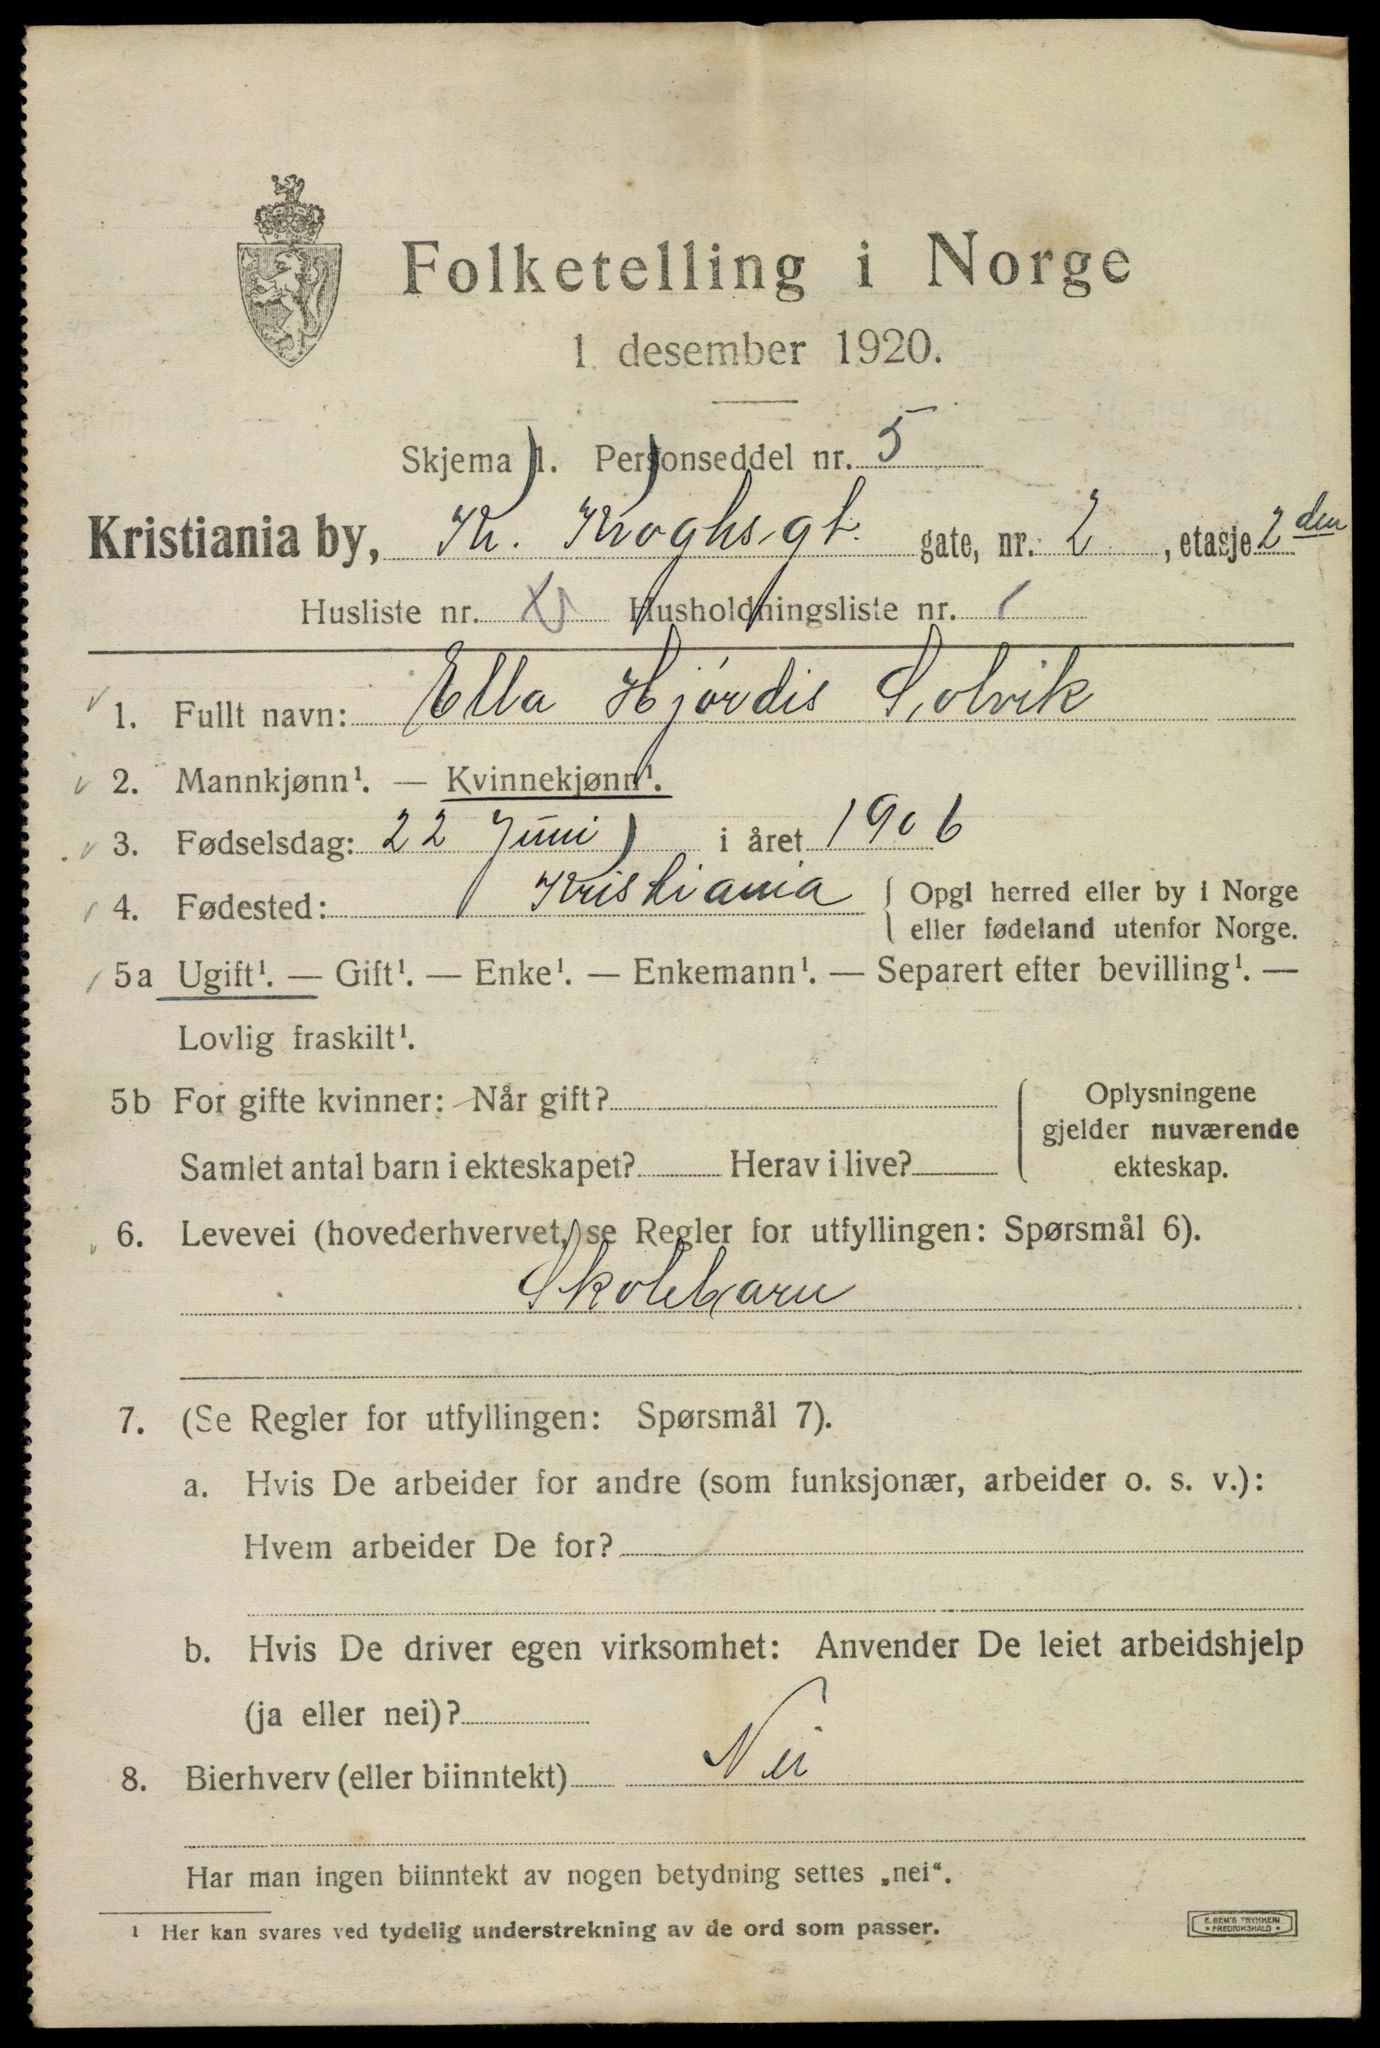 Folketelling i Norge
1. desember 1920.
Skjema 1. Personseddel nr. 5
Kristiania by, Kr. Kroghsgt. gate, nr. 2, etasje 2den
Husliste nr. Husholdningsliste nr. 1
1. Fullt navn: Ella Hjørdis Solvik
2. Mannkjønn¹. — Kvinnekjønn¹.
3. Fødselsdag: 22 Juni i året 1906
4. Fødested: Kristiania { Opgi herred eller by i Norge
eller fødeland utenfor Norge.
5a Ugift¹. — Gift¹. — Enke¹. — Enkemann¹. — Separert efter bevilling¹. —
Lovlig fraskilt¹.
5b For gifte kvinner: Når gift?
Samlet antal barn i ekteskapet? Herav i live?
Oplysningene
gjelder nuværende
ekteskap.
6. Levevei (hovederhvervet, se Regler for utfyllingen: Spørsmål 6).
Skolebarn
7. (Se Regler for utfyllingen: Spørsmål 7).
a. Hvis De arbeider for andre (som funksjonær, arbeider o. s. v.):
Hvem arbeider De for?
b. Hvis De driver egen virksomhet: Anvender De leiet arbeidshjelp
(ja eller nei)?
8. Bierhverv (eller biinntekt) Nei
Har man ingen biinntekt av nogen betydning settes „nei“.
¹ Her kan svares ved tydelig understrekning av de ord som passer.
E. SEM'S TRYKKERI
• FREDRIKSHALD •